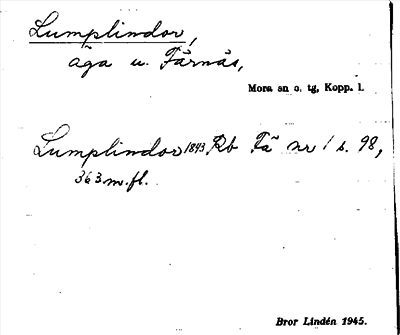 Lumplindor,
äga u. Färnäs,
Mora sn o. tg, Kopp. l.
Lumplindor 1843 Rb Fä nr 1 s. 98,
363 m.fl.
Bror Lindén 1945.